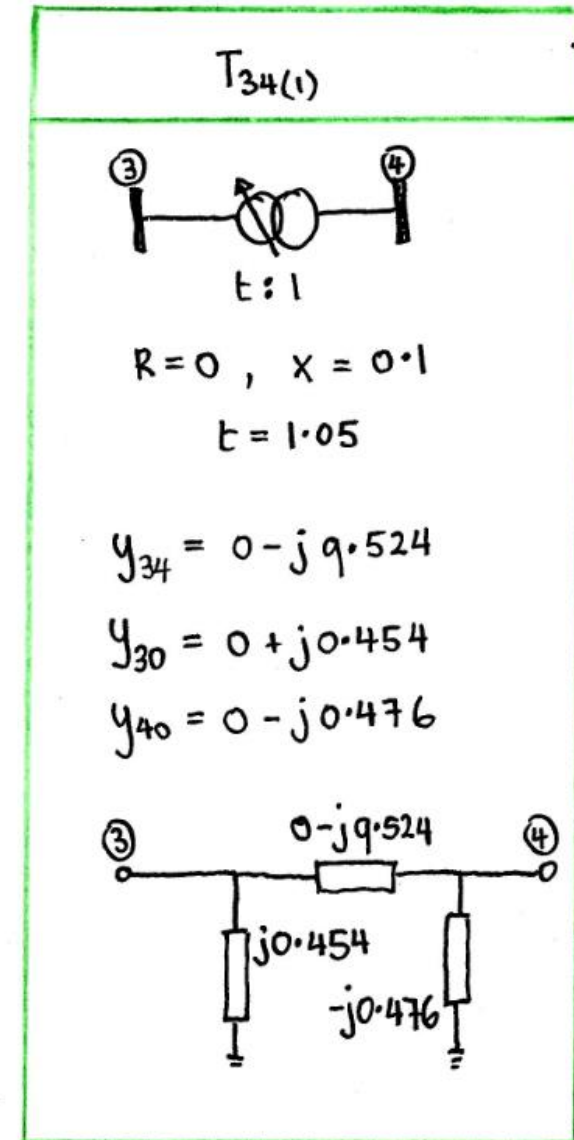 T34(1)
③ ④
t : 1
R = 0 , X = 0.1
t = 1.05
y34 = 0 - j 9.524
y30 = 0 + j0.454
y40 = 0 - j0.476
③ 0-j9.524 ④
j0.454
-j0.476